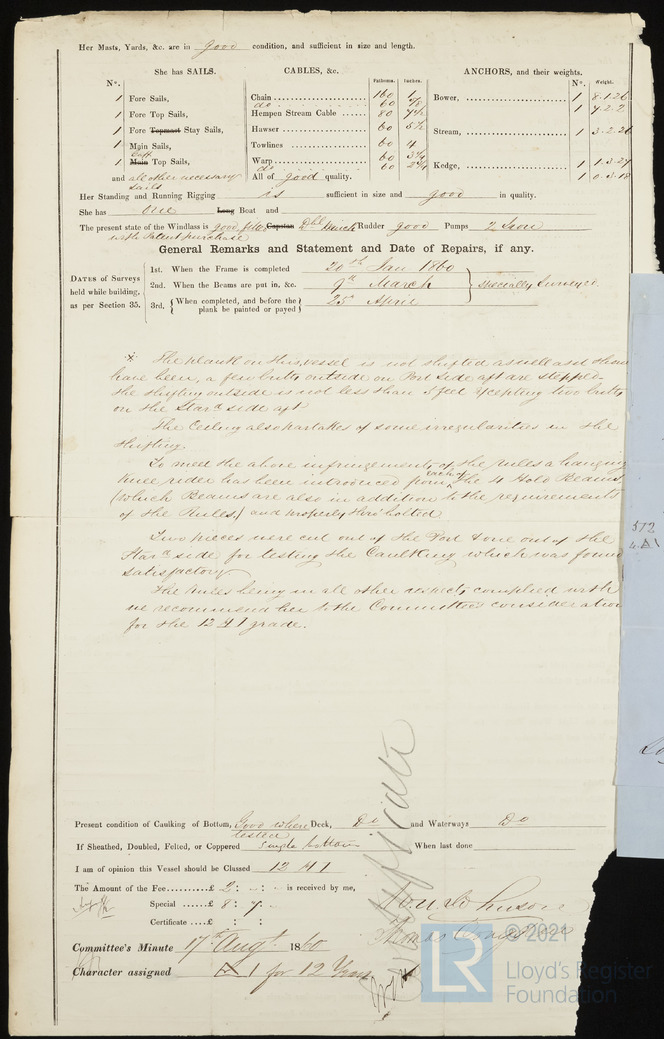 Her Masts, Yards, &c. are in good condition, and sufficient in size and length.
She has SAILS. CABLES, &c. Fathoms. Inches. ANCHORS, and their weights.
N°. N°. Weight.
1 Fore Sails, Chain 160 1 Bower, 1 8.1.26
do 60 7/8 1 7.2.2
1 Fore Top Sails, Hempen Stream Cable 80 7½
1 Fore Topmast Stay Sails, Hawser 60 5½ Stream, 1 3.2.26
1 Main Sails, Towlines 60 4
1 Gaff Main Top Sails, Warp 60 Kedge, 1 1.3.27
do 60 1 0.3.18
and all other necessary sails All of good quality.
Her Standing and Running Rigging is sufficient in size and good in quality.
She has One Long Boat and
The present state of the Windlass is good fitted Capstan Dbl Winch Rudder good Pumps 2 Iron
with Patent purchase
General Remarks and Statement and Date of Repairs, if any.
DATES of Surveys held while building, as per Section 35.
1st. When the Frame is completed 20th Jan 1860
2nd. When the Beams are put in, &c. 9th March
3rd. When completed, and before the plank be painted or payed 25 April
Specially Surveyed.
* The plank on this vessel is not shifted as well as it should
have been, a few butts outside on Port side aft are stepped
the shifting outside is not less than 5 feet excepting two butts
on the Stard side aft
The Ceiling also partakes of some irregularities in the
shifting
To meet the above infringements of the Rules a hanging
knee rider has been introduced from each of the 4 Hold Beams
(which Beams are also in addition to the requirements
of the Rules,) and properly thro' bolted
Two pieces were cut out of the Port & one out of the
Stard side for testing the Caulking which was found
satisfactory
The Rules being in all other respects complied with
we recommend her to the Committee's consideration
for the 12 A 1 grade.
572
Present condition of Caulking of Bottom, Good where tested Deck, Do and Waterways Do
If Sheathed, Doubled, Felted, or Coppered Single bottom When last done
I am of opinion this Vessel should be Classed 12 A 1
The Amount of the Fee £ 2 : - : - is received by me,
Special £ 8 : 7 : -
Certificate £ : :
Committee's Minute 17th Augt 1860
Character assigned A 1 for 12 Years
© 2021
LR
Lloyd's Register
Foundation